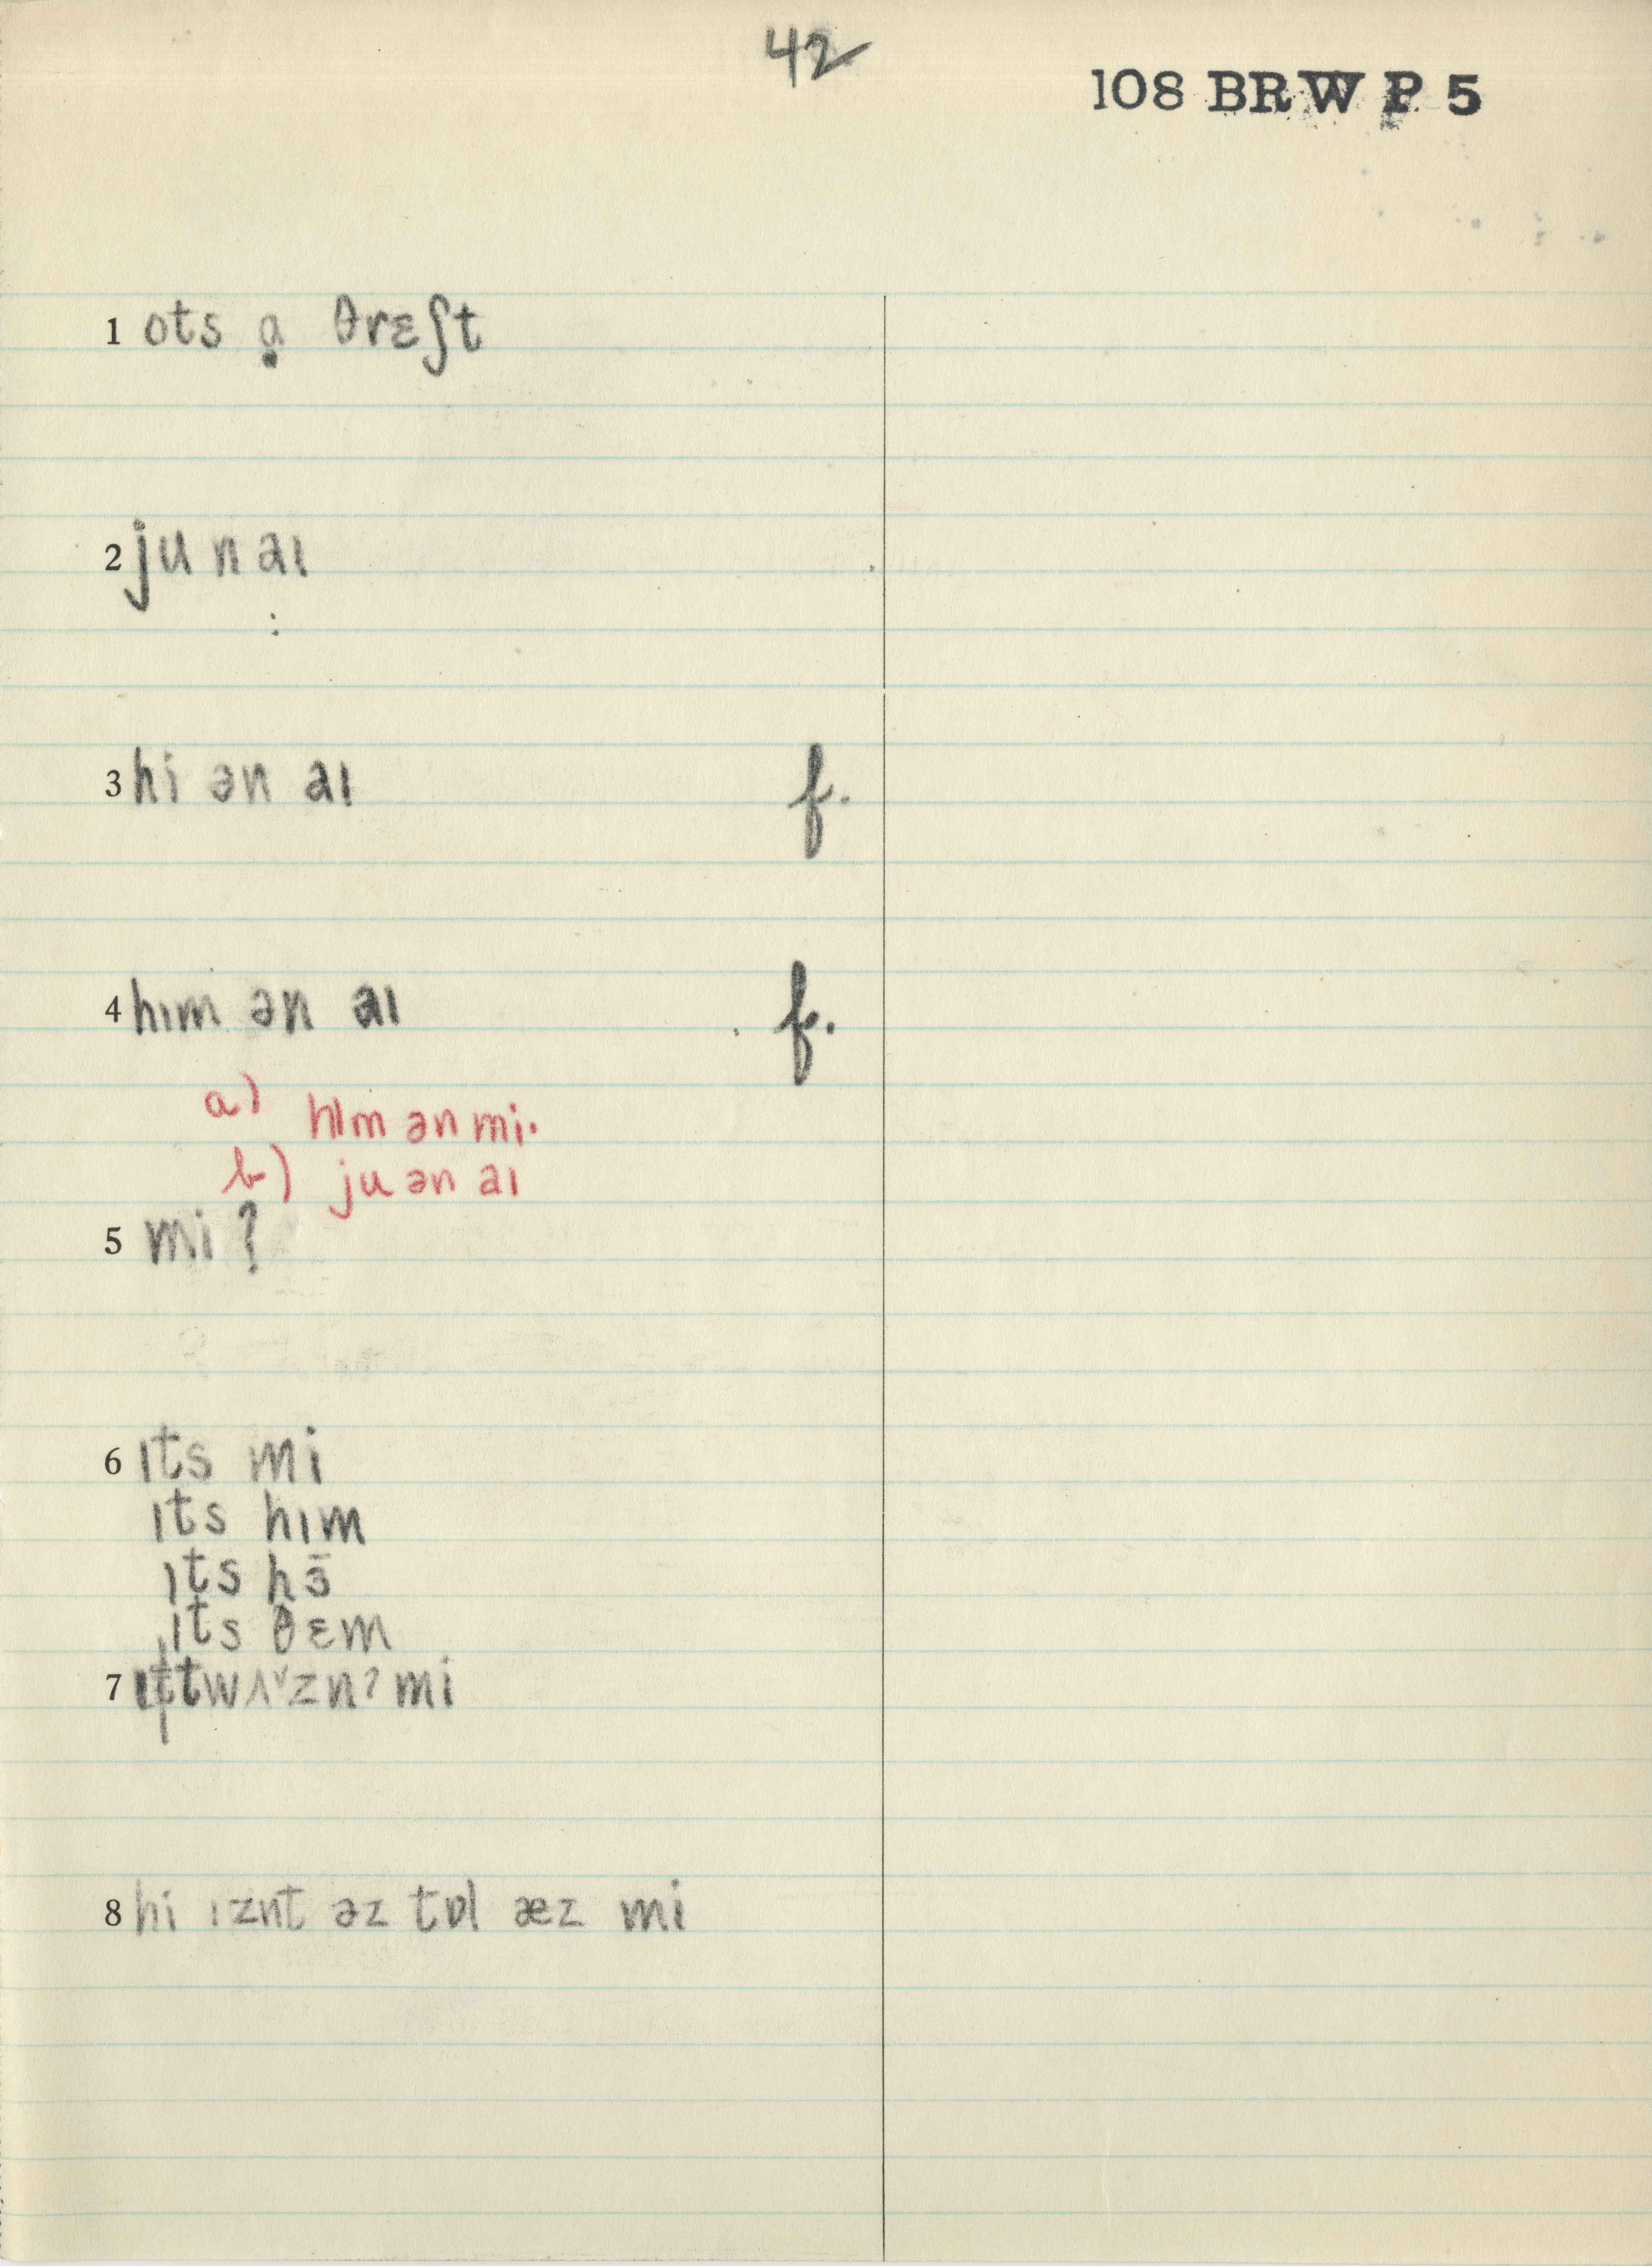 42
108 BRW P 5
1 ots ạ θrɛʃt
2 ju n aɪ
3 hi ən aɪ f.
4 hɪm ən aɪ f.
a) hɪm ən mi.
b) ju ən aɪ
5 mi?
6 ɪts mi
ɪts hɪm
ɪts hɜ̄
ɪts θɛm
7 ɪt twʌˇznʔ mi
8 hi ɪznt əz tɒl æz mi